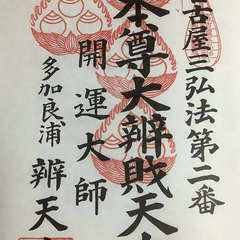 古屋三弘法第二番
本尊大辨財天
開運大師
多加良浦 辨天